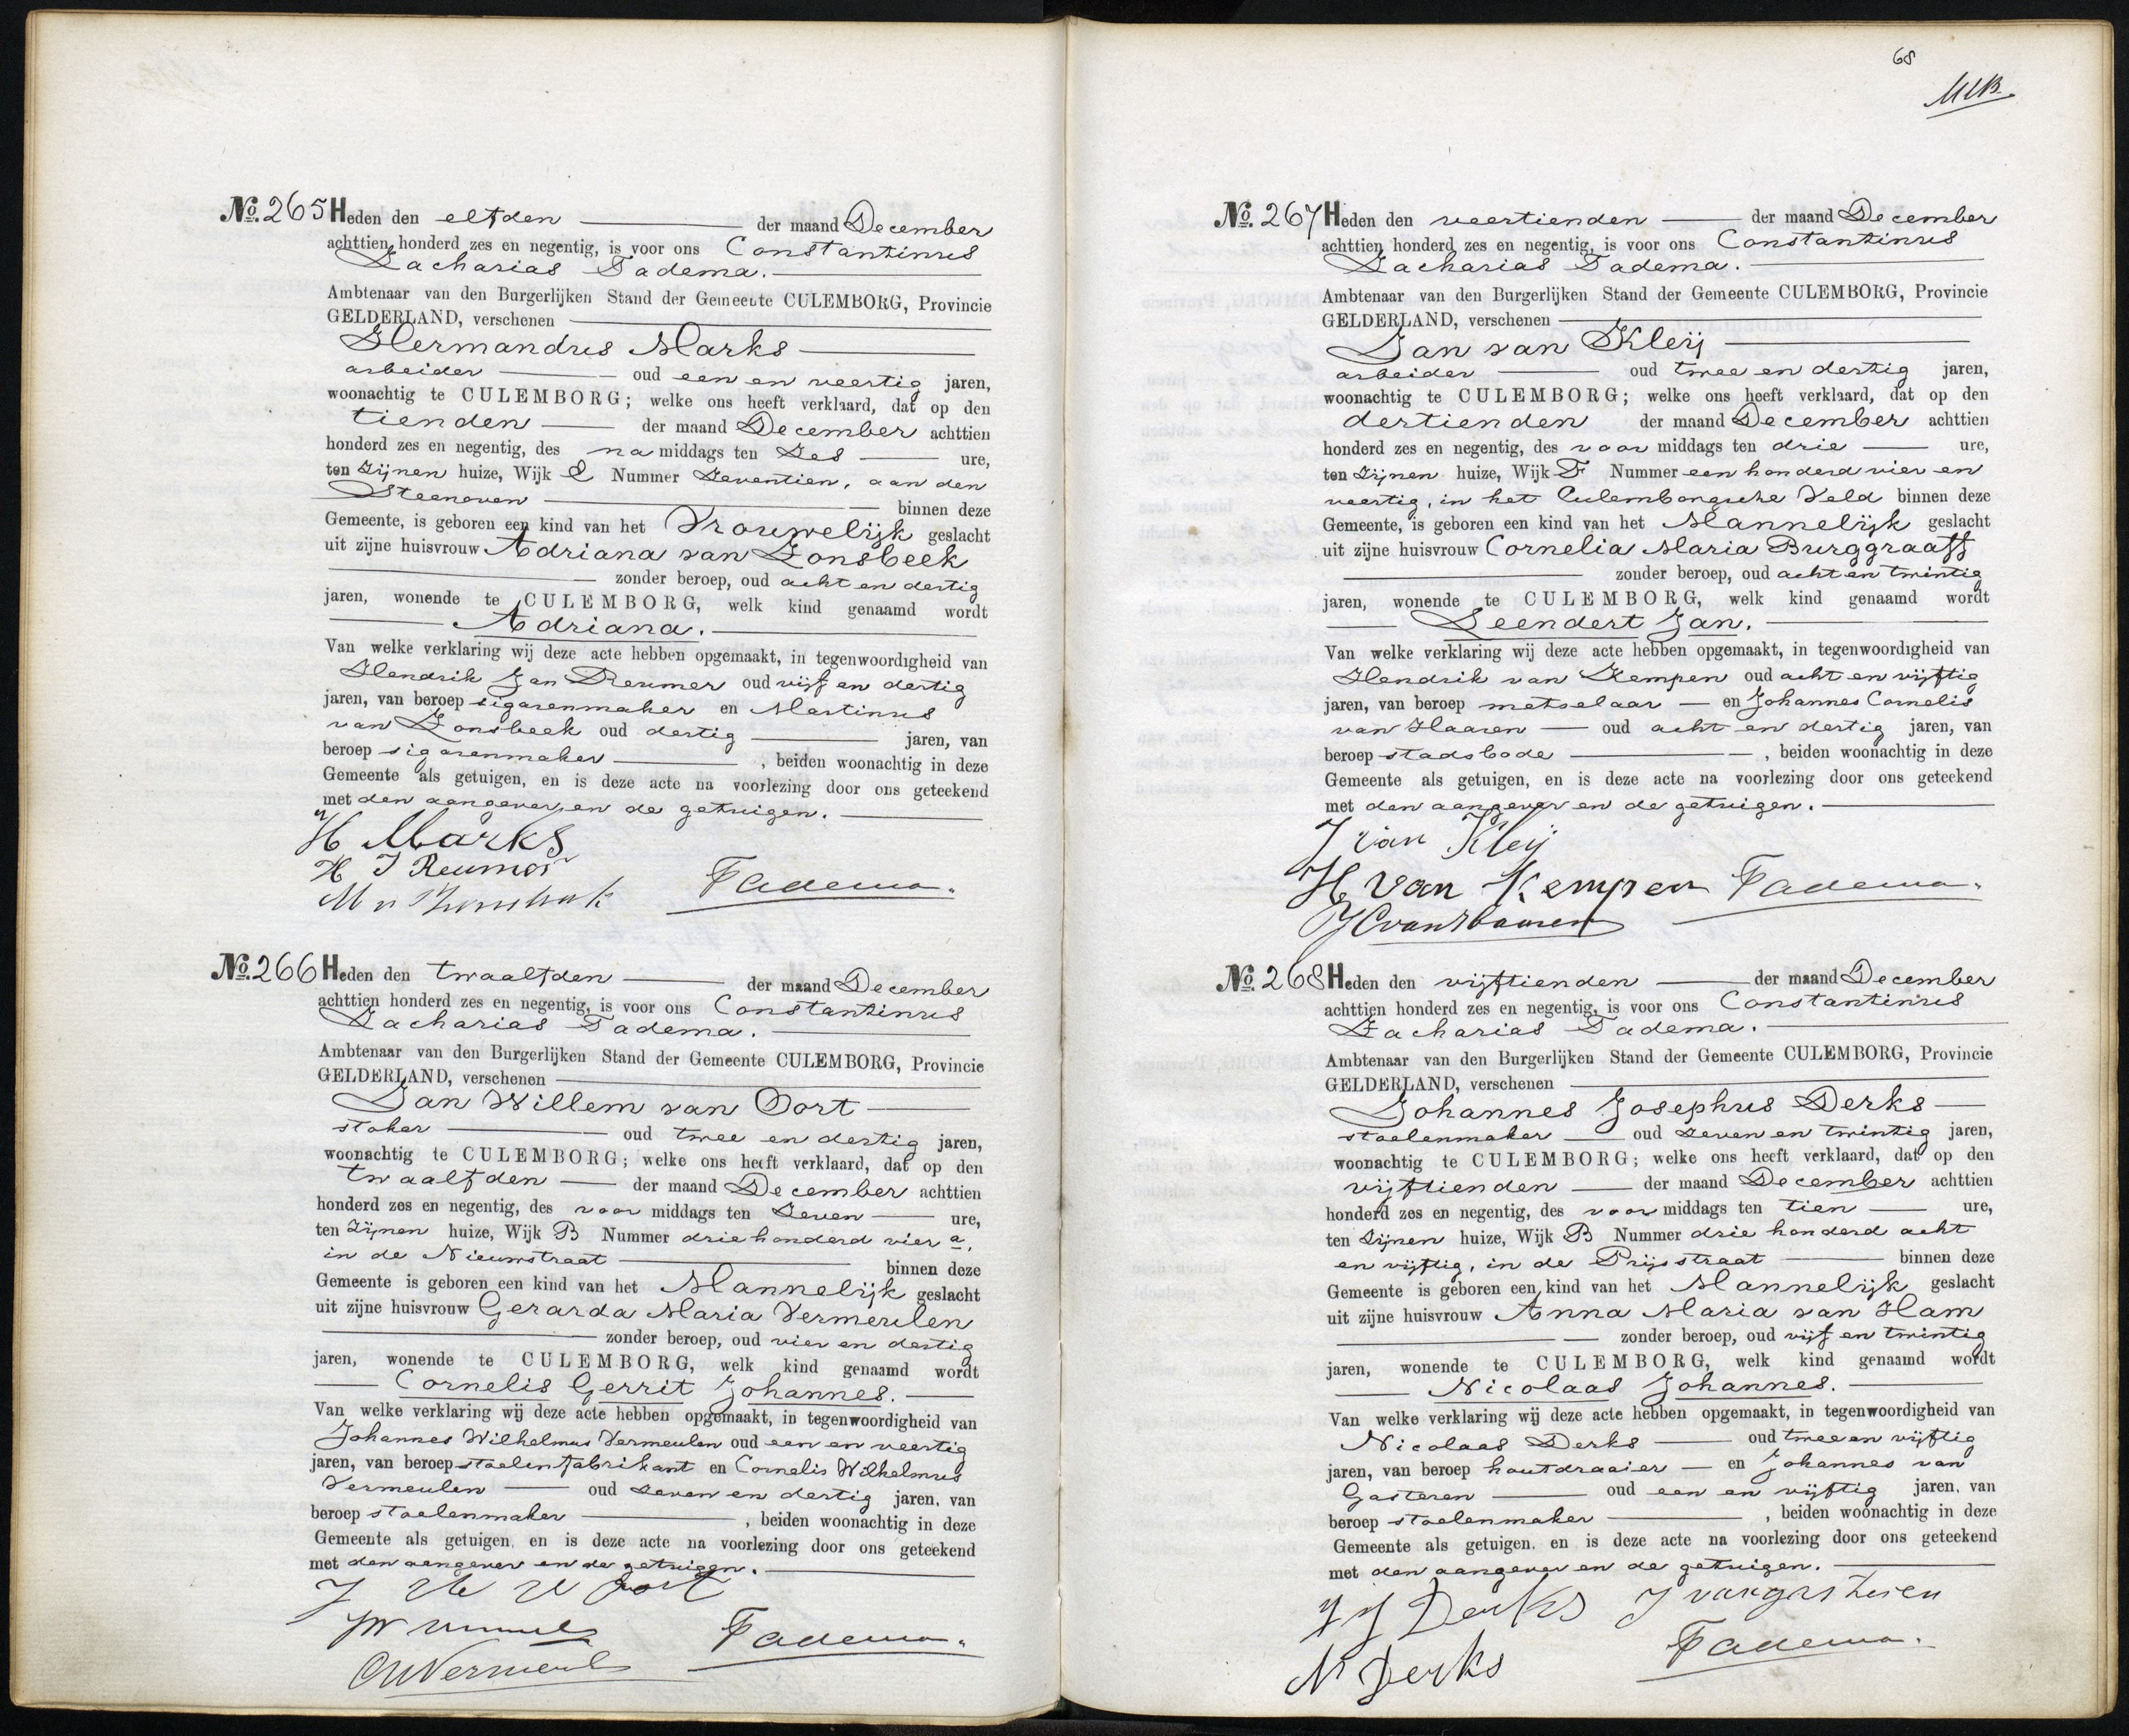 No. 265 Heden den elfden der maand December
achttien honderd zes en negentig, is voor ons Constantinus
Zacharias Tadema.
Ambtenaar van den Burgerlijken Stand der Gemeente CULEMBORG, Provincie
GELDERLAND, verschenen
Hermandus Marks
arbeider oud een en veertig jaren,
woonachtig te CULEMBORG; welke ons heeft verklaard, dat op den
tienden der maand December achttien
honderd zes en negentig, des na middags ten zes ure,
ten zijnen huize, Wijk E Nummer zeventien, aan den
Steenoven binnen deze
Gemeente, is geboren een kind van het Vrouwelijk geslacht
uit zijne huisvrouw Adriana van Zonsbeek
zonder beroep, oud acht en dertig
jaren, wonende te CULEMBORG, welk kind genaamd wordt
Adriana.
Van welke verklaring wij deze acte hebben opgemaakt, in tegenwoordigheid van
Hendrik Jan Reumer oud vijf en dertig
jaren, van beroep sigarenmaker en Martinus
van Zonsbeek oud dertig jaren, van
beroep sigarenmaker, beiden woonachtig in deze
Gemeente als getuigen, en is deze acte na voorlezing door ons geteekend
met den aangever en de getuigen.
H Marks
H J Reumer
M v Zonsbeek Tadema.
No. 266 Heden den twaalfden der maand December
achttien honderd zes en negentig, is voor ons Constantinus
Zacharias Tadema.
Ambtenaar van den Burgerlijken Stand der Gemeente CULEMBORG, Provincie
GELDERLAND, verschenen
Jan Willem van Oort
stoker oud twee en dertig jaren,
woonachtig te CULEMBORG; welke ons heeft verklaard, dat op den
twaalfden der maand December achttien
honderd zes en negentig, des voor middags ten zeven ure,
ten zijnen huize, Wijk B Nummer driehonderd vier a,
in de Nieuwstraat binnen deze
Gemeente is geboren een kind van het Mannelijk geslacht
uit zijne huisvrouw Gerarda Maria Vermeulen
zonder beroep, oud vier en dertig
jaren, wonende te CULEMBORG, welk kind genaamd wordt
Cornelis Gerrit Johannes.
Van welke verklaring wij deze acte hebben opgemaakt, in tegenwoordigheid van
Johannes Wilhelmus Vermeulen oud een en veertig
jaren, van beroep stoelenfabrikant en Cornelis Wilhelmus
Vermeulen oud zeven en dertig jaren, van
beroep stoelenmaker, beiden woonachtig in deze
Gemeente als getuigen, en is deze acte na voorlezing door ons geteekend
met den aangever en de getuigen.
J W v Oort
Tadema.
CWVermeul
68
No. 267 Heden den veertienden der maand December
achttien honderd zes en negentig, is voor ons Constantinus
Zacharias Tadema.
Ambtenaar van den Burgerlijken Stand der Gemeente CULEMBORG, Provincie
GELDERLAND, verschenen
Jan van Kleij
arbeider oud twee en dertig jaren,
woonachtig te CULEMBORG; welke ons heeft verklaard, dat op den
dertienden der maand December achttien
honderd zes en negentig, des voor middags ten drie ure,
ten zijnen huize, Wijk F Nummer een honderd vier en
veertig, in het Culemborgsche Veld binnen deze
Gemeente, is geboren een kind van het Mannelijk geslacht
uit zijne huisvrouw Cornelia Maria Burggraaff
zonder beroep, oud acht en twintig
jaren, wonende te CULEMBORG, welk kind genaamd wordt
Leendert Jan.
Van welke verklaring wij deze acte hebben opgemaakt, in tegenwoordigheid van
Hendrik van Kempen oud acht en vijftig
jaren, van beroep metselaar en Johannes Cornelis
van Haaren oud acht en dertig jaren, van
beroep stadsbode, beiden woonachtig in deze
Gemeente als getuigen, en is deze acte na voorlezing door ons geteekend
met den aangever en de getuigen.
J van Kleij
H van Kempen Tadema.
JCvanHaaren
No. 268 Heden den vijftienden der maand December
achttien honderd zes en negentig, is voor ons Constantinus
Zacharias Tadema.
Ambtenaar van den Burgerlijken Stand der Gemeente CULEMBORG, Provincie
GELDERLAND, verschenen
Johannes Josephus Derks
stoelenmaker oud zeven en twintig jaren,
woonachtig te CULEMBORG; welke ons heeft verklaard, dat op den
vijftienden der maand December achttien
honderd zes en negentig, des voor middags ten tien ure,
ten zijnen huize, Wijk B Nummer drie honderd acht
en vijftig, in de Prijsstraat binnen deze
Gemeente is geboren een kind van het Mannelijk geslacht
uit zijne huisvrouw Anna Maria van Ham
zonder beroep, oud vijf en twintig
jaren, wonende te CULEMBORG, welk kind genaamd wordt
Nicolaas Johannes.
Van welke verklaring wij deze acte hebben opgemaakt, in tegenwoordigheid van
Nicolaas Derks oud twee en vijftig
jaren, van beroep houtdraaier en Johannes van
Gasteren oud een en vijftig jaren, van
beroep stoelenmaker, beiden woonachtig in deze
Gemeente als getuigen, en is deze acte na voorlezing door ons geteekend
met den aangever en de getuigen.
J J Derks J van gasteren
N Derks Tadema.